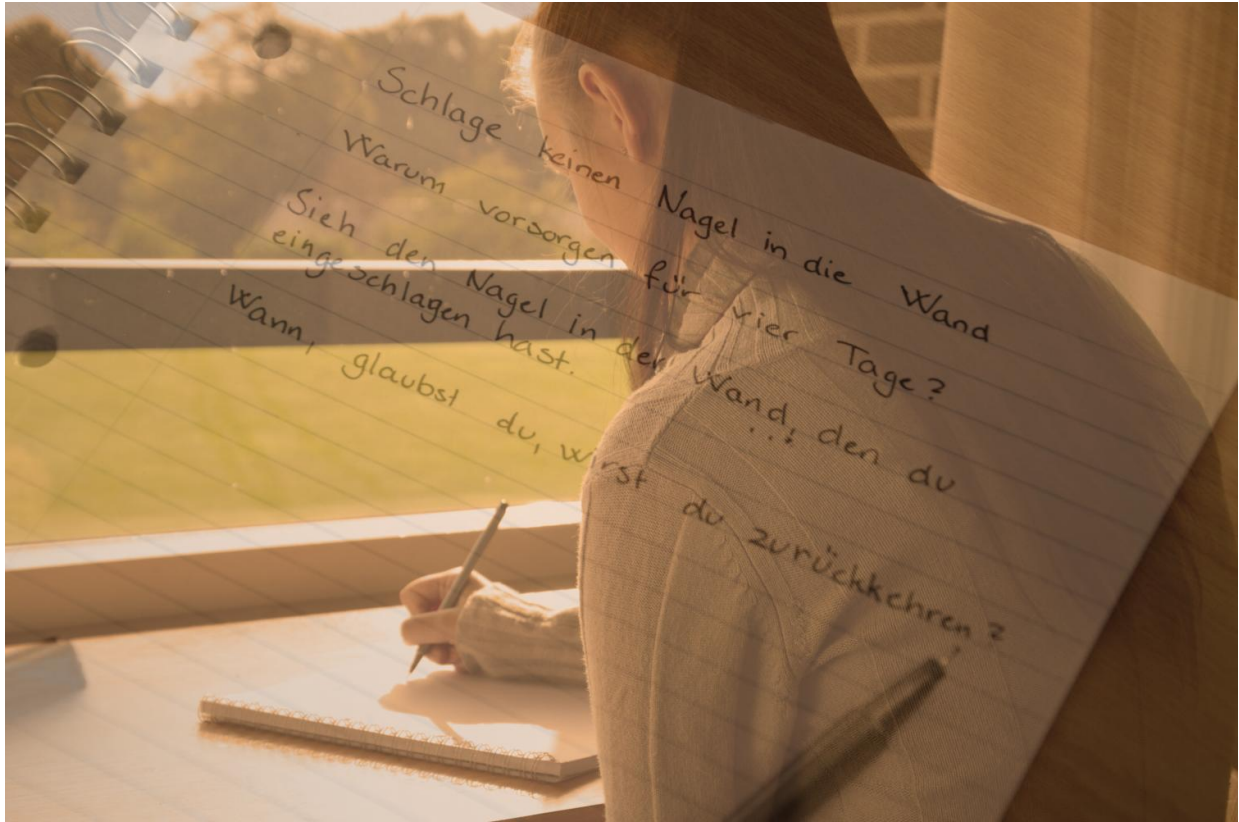 Schlage keinen Nagel in die Wand
Warum vorsorgen für vier Tage?
Sieh den Nagel in der Wand, den du
eingeschlagen hast.
Wann, glaubst du, wirst du zurückkehren?